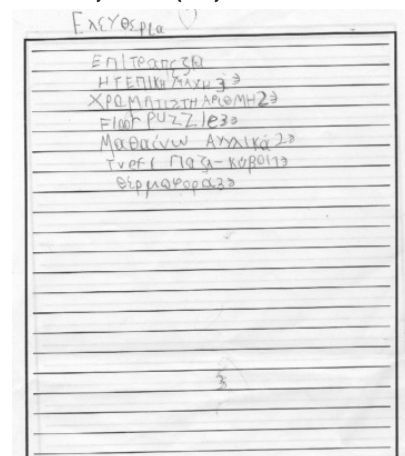 Ελευθερία
Επιτραπέζια
Η ΓΕΠΙΚΗ ΜΑΧΗ 3э
ΧΡΩΜΑΤΙΣΤΗ ΑΡΙΘΜΗ2э
Floor PUZZle3э
Μαθαίνω Αγγλικά 2э
παζλ-κύβοι1э
θερμοφόρα3э
3